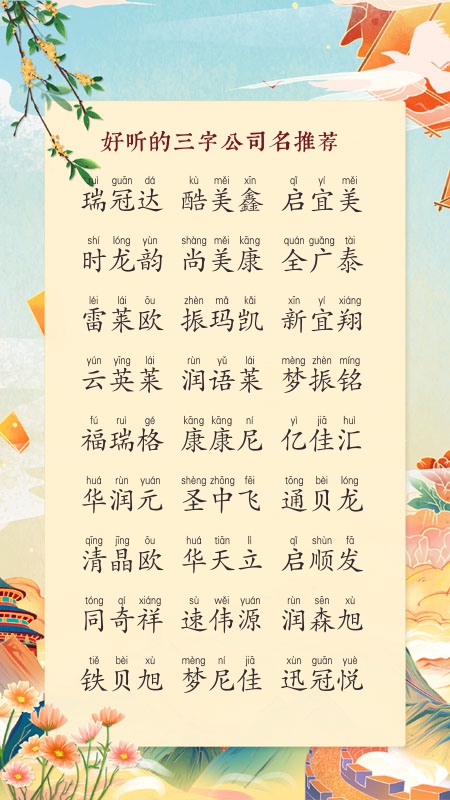 好听的三字公司名推荐
ruì guān dá kù měi xīn qǐ yí měi
瑞冠达 酷美鑫 启宜美
shí lóng yùn shàng měi kāng quán guǎng tài
时龙韵 尚美康 全广泰
léi lái ōu zhèn mǎ kǎi xīn yí xiáng
雷莱欧 振玛凯 新宜翔
yún yīng lái rùn yǔ lái mèng zhèn míng
云英莱 润语莱 梦振铭
fú ruì gé kāng kāng ní yì jiā huì
福瑞格 康康尼 亿佳汇
huá rùn yuán shèng zhōng fēi tōng bèi lóng
华润元 圣中飞 通贝龙
qīng jīng ōu huá tiān lì qǐ shùn fā
清晶欧 华天立 启顺发
tóng qí xiáng sù wěi yuán rùn sēn xù
同奇祥 速伟源 润森旭
tiě bèi xù mèng ní jiā xùn guān yuè
铁贝旭 梦尼佳 迅冠悦